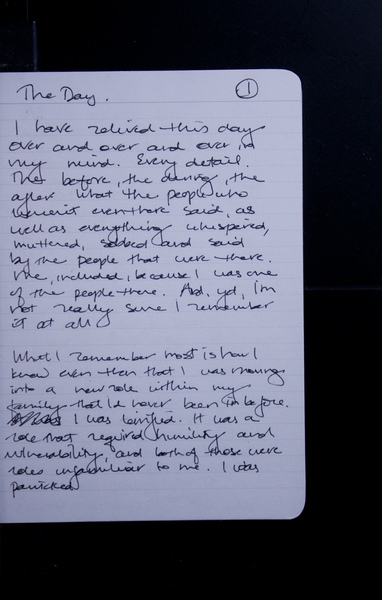 The Day.
1
I have relived this day
over and over and over in
my mind. Every detail.
The before, the during, the
after. What the people who
weren't even there said, as
well as everything whispered,
muttered, sobbed and said
by the people that were there.
Me, included, because I was one
of the people there. And, yet, I'm
not really sure I remember
it at all.
What I remember most is how I
knew even then that I was moving
into a new role within my
family that I'd never been in before.
I was terrified. It was a
role that required humility and
vulnerability, and both of those were
roles unfamiliar to me. I was
panicked